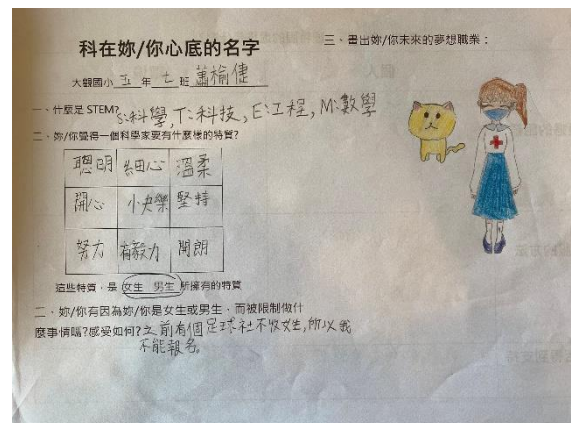 科在妳/你心底的名字
大觀國小 五 年 七 班 蕭榆倢
一、什麼是 STEM? S:科學, T:科技, E:工程, M:數學
二、妳/你覺得一個科學家要有什麼樣的特質?
聰明 細心 溫柔
開心 小快樂 堅持
努力 有毅力 開朗
這些特質,是 女生 男生 所擁有的特質
二、妳/你有因為妳/你是女生或男生,而被限制做什
麼事情嗎?感受如何? 之前有個足球社不收女生,所以我
不能報名。
三、畫出妳/你未來的夢想職業: